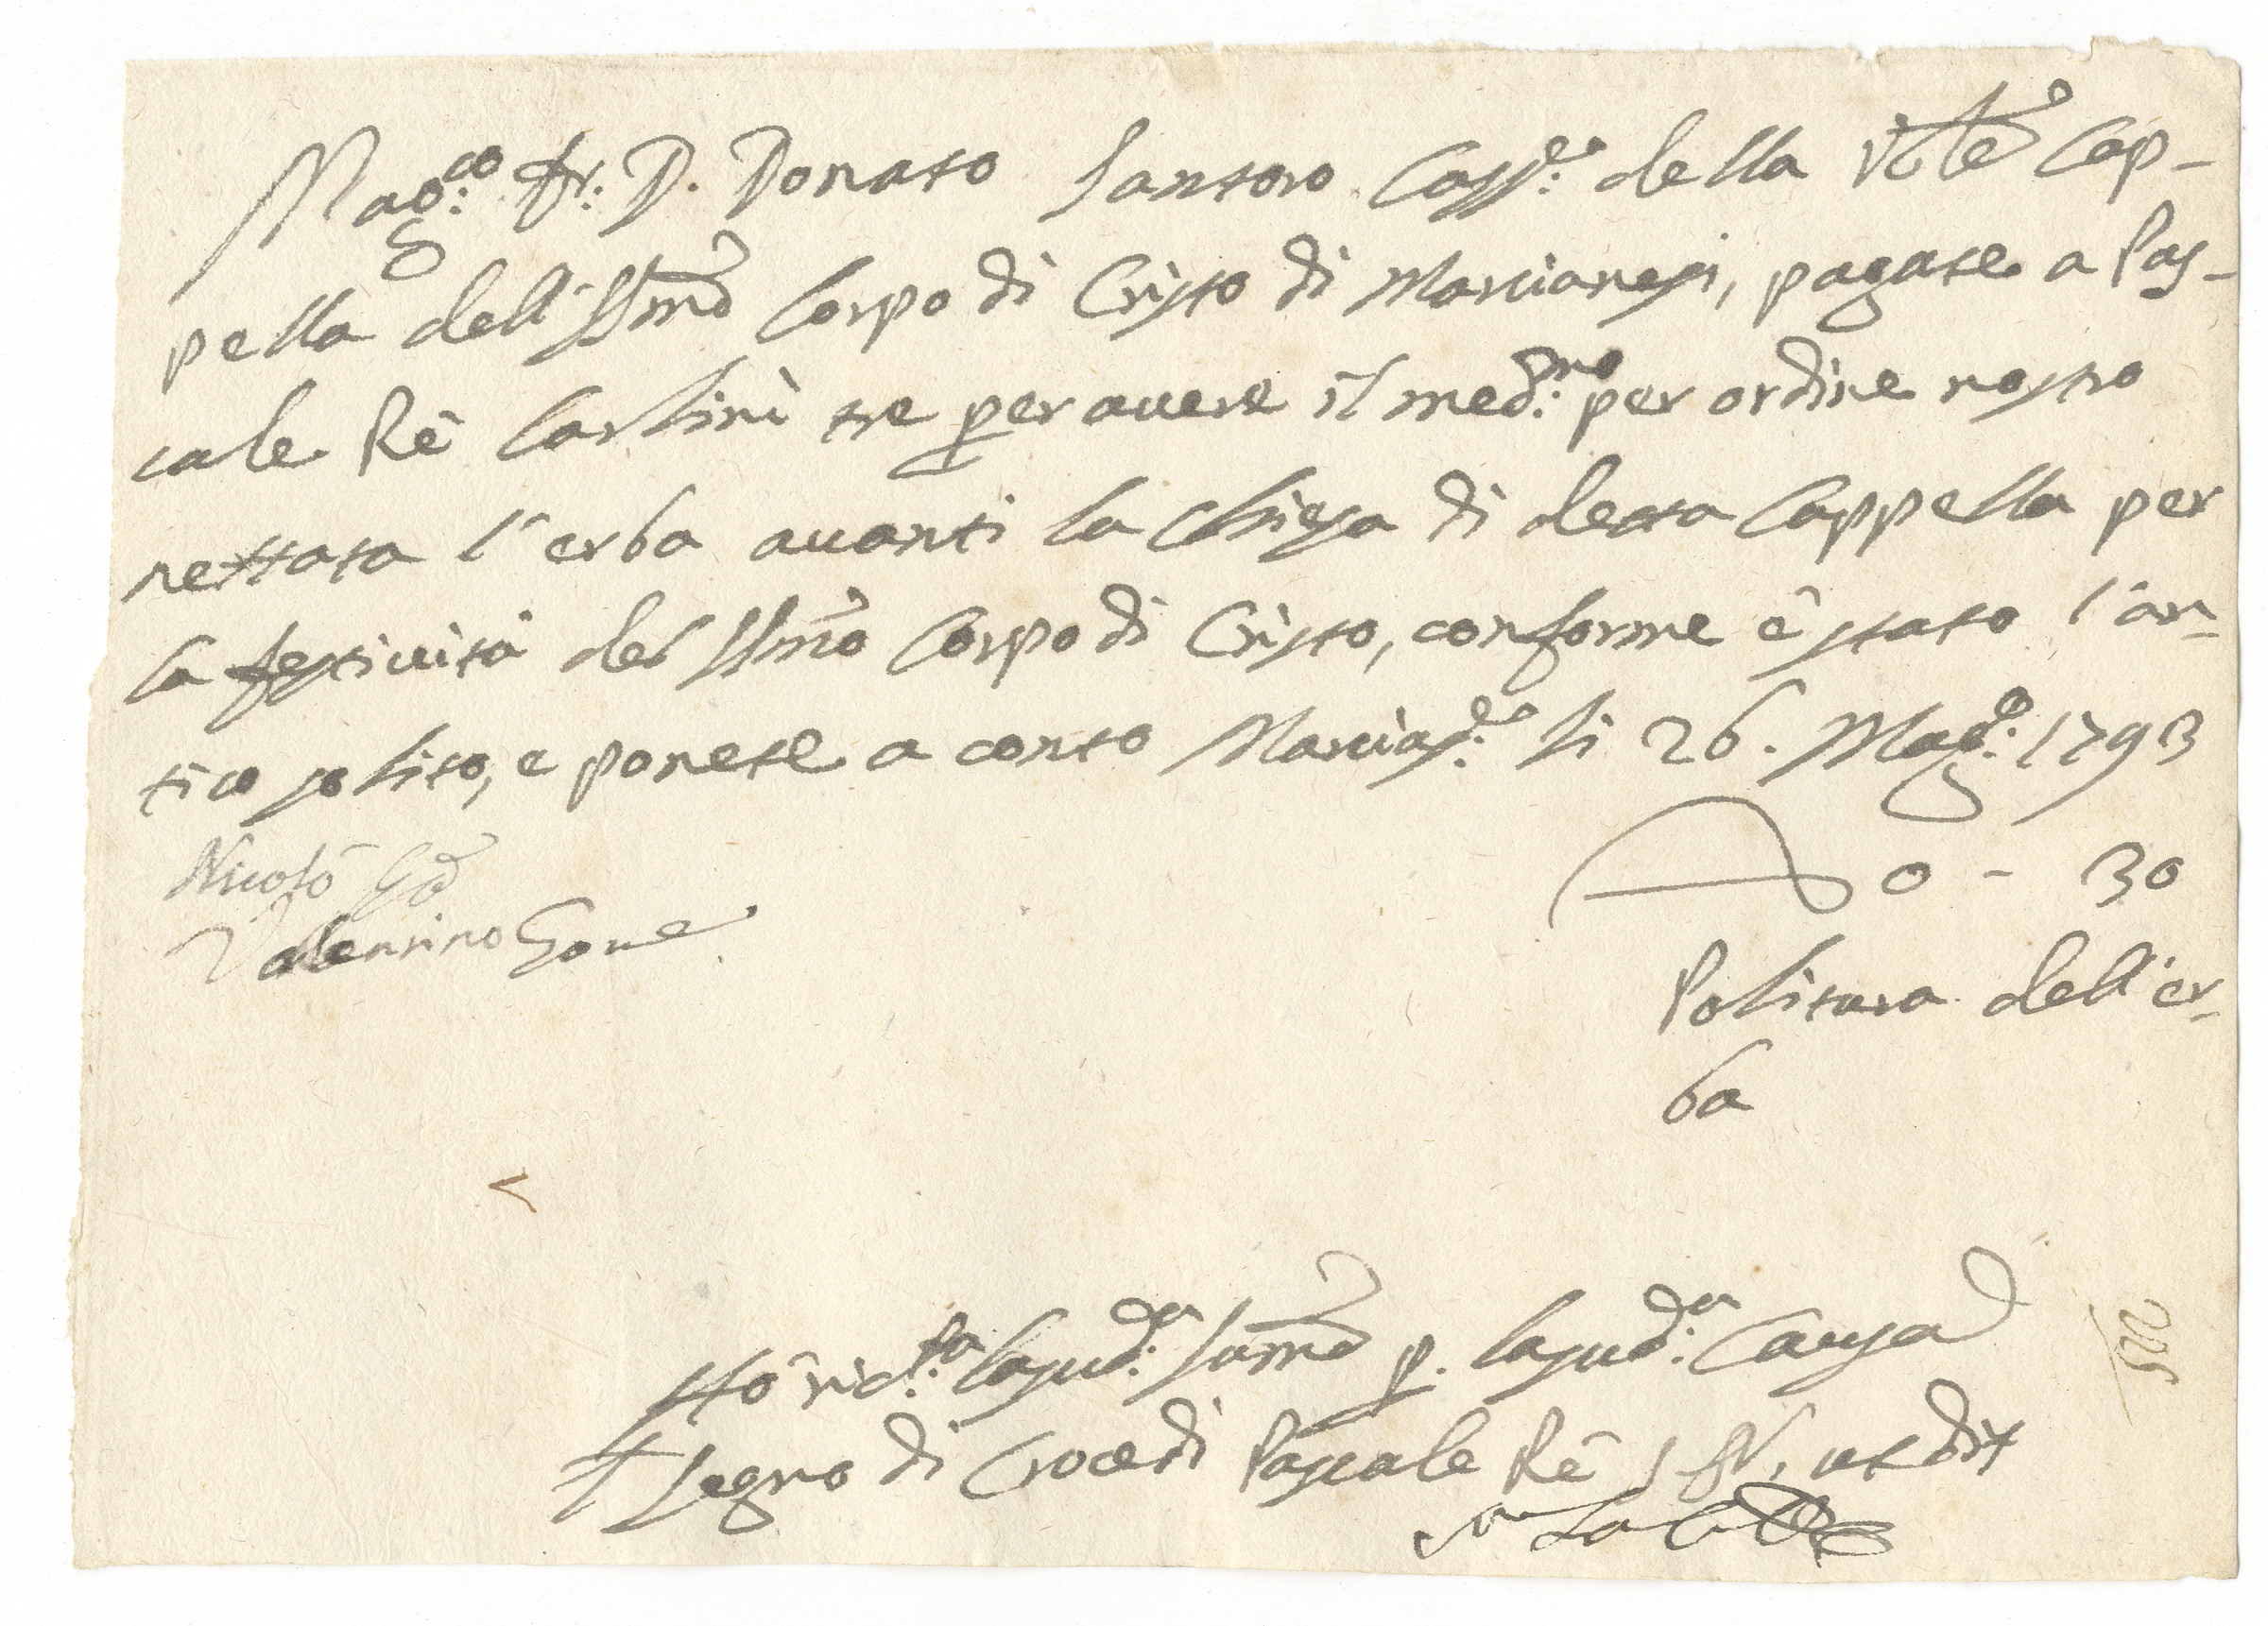 Mag:co Sr: D. Donato Santoro Cass:e della Cap-
pella dell' SSmo Corpo di Cristo di Marcianesi, pagate a Pas-
cale Rè Carlini tre per avere il med:mo per ordine nostro
nettata l'erba avanti la Chiesa di detta Cappella per
la festività del SSmo Corpo di Cristo, conforme è stato l'an-
tico solito, e ponete a conto Marcias:e li 26. Mag:o 1793
Nicolò
Valentino
0 - 30
Politura dell'er-
ba
Hò ric:ta la sud:a Summa p. la sud:a Causa
+ Segno di Croce di Pascale Rè ut dix